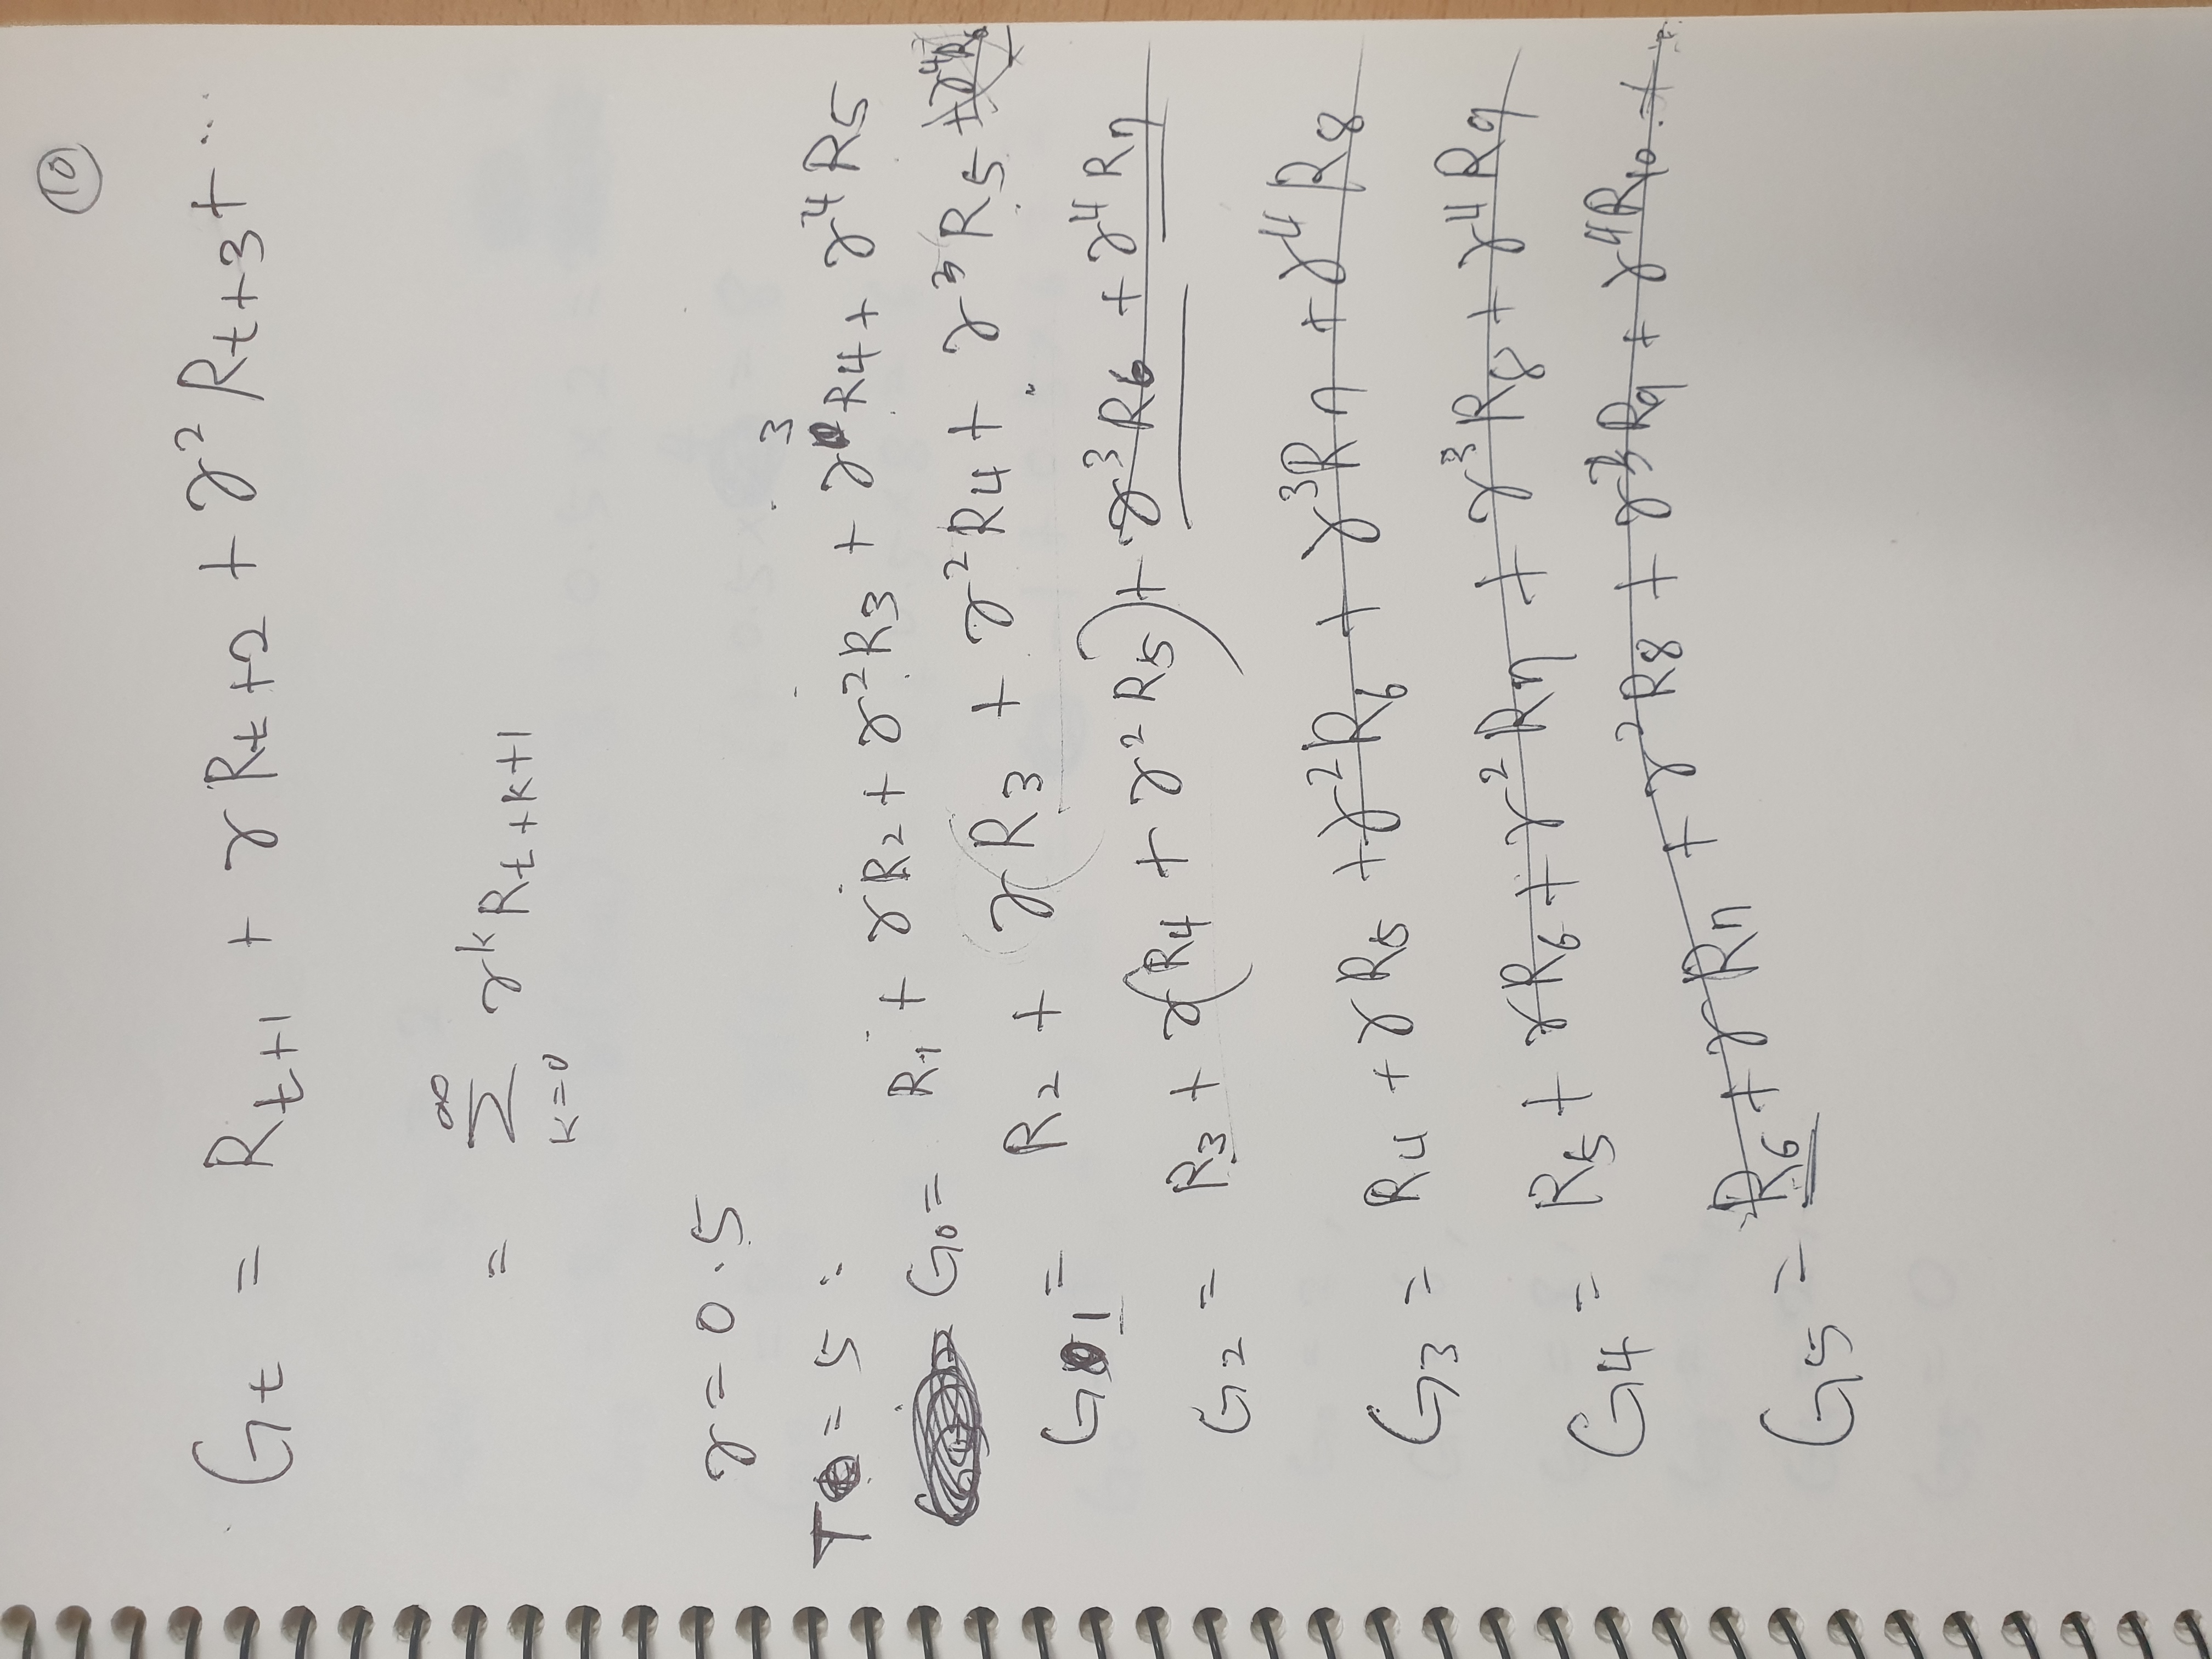 10
G_t = R_{t+1} + γ R_{t+2} + γ² R_{t+3} + ...
= ∑_{k=0}^{∞} γ^k R_{t+k+1}
γ = 0.5
T = 5 :
G₀ = R₁ + γR₂ + γ²R₃ + γ³R₄ + γ⁴R₅
G₁ = R₂ + γ(R₃ + γ²R₄ + γ³R₅ + γ⁴R₆
G₂ = R₃ + γ(R₄ + γ²R₅) + γ³R₆ + γ⁴R₇
G₃ = R₄ + γR₅ + γ²R₆ + γ³R₇ + γ⁴R₈
G₄ = R₅ + γR₆ + γ²R₇ + γ³R₈ + γ⁴R₉
G₅ = R₆ + γR₇ + γ²R₈ + γ³R₉ + γ⁴R₁₀ + ..